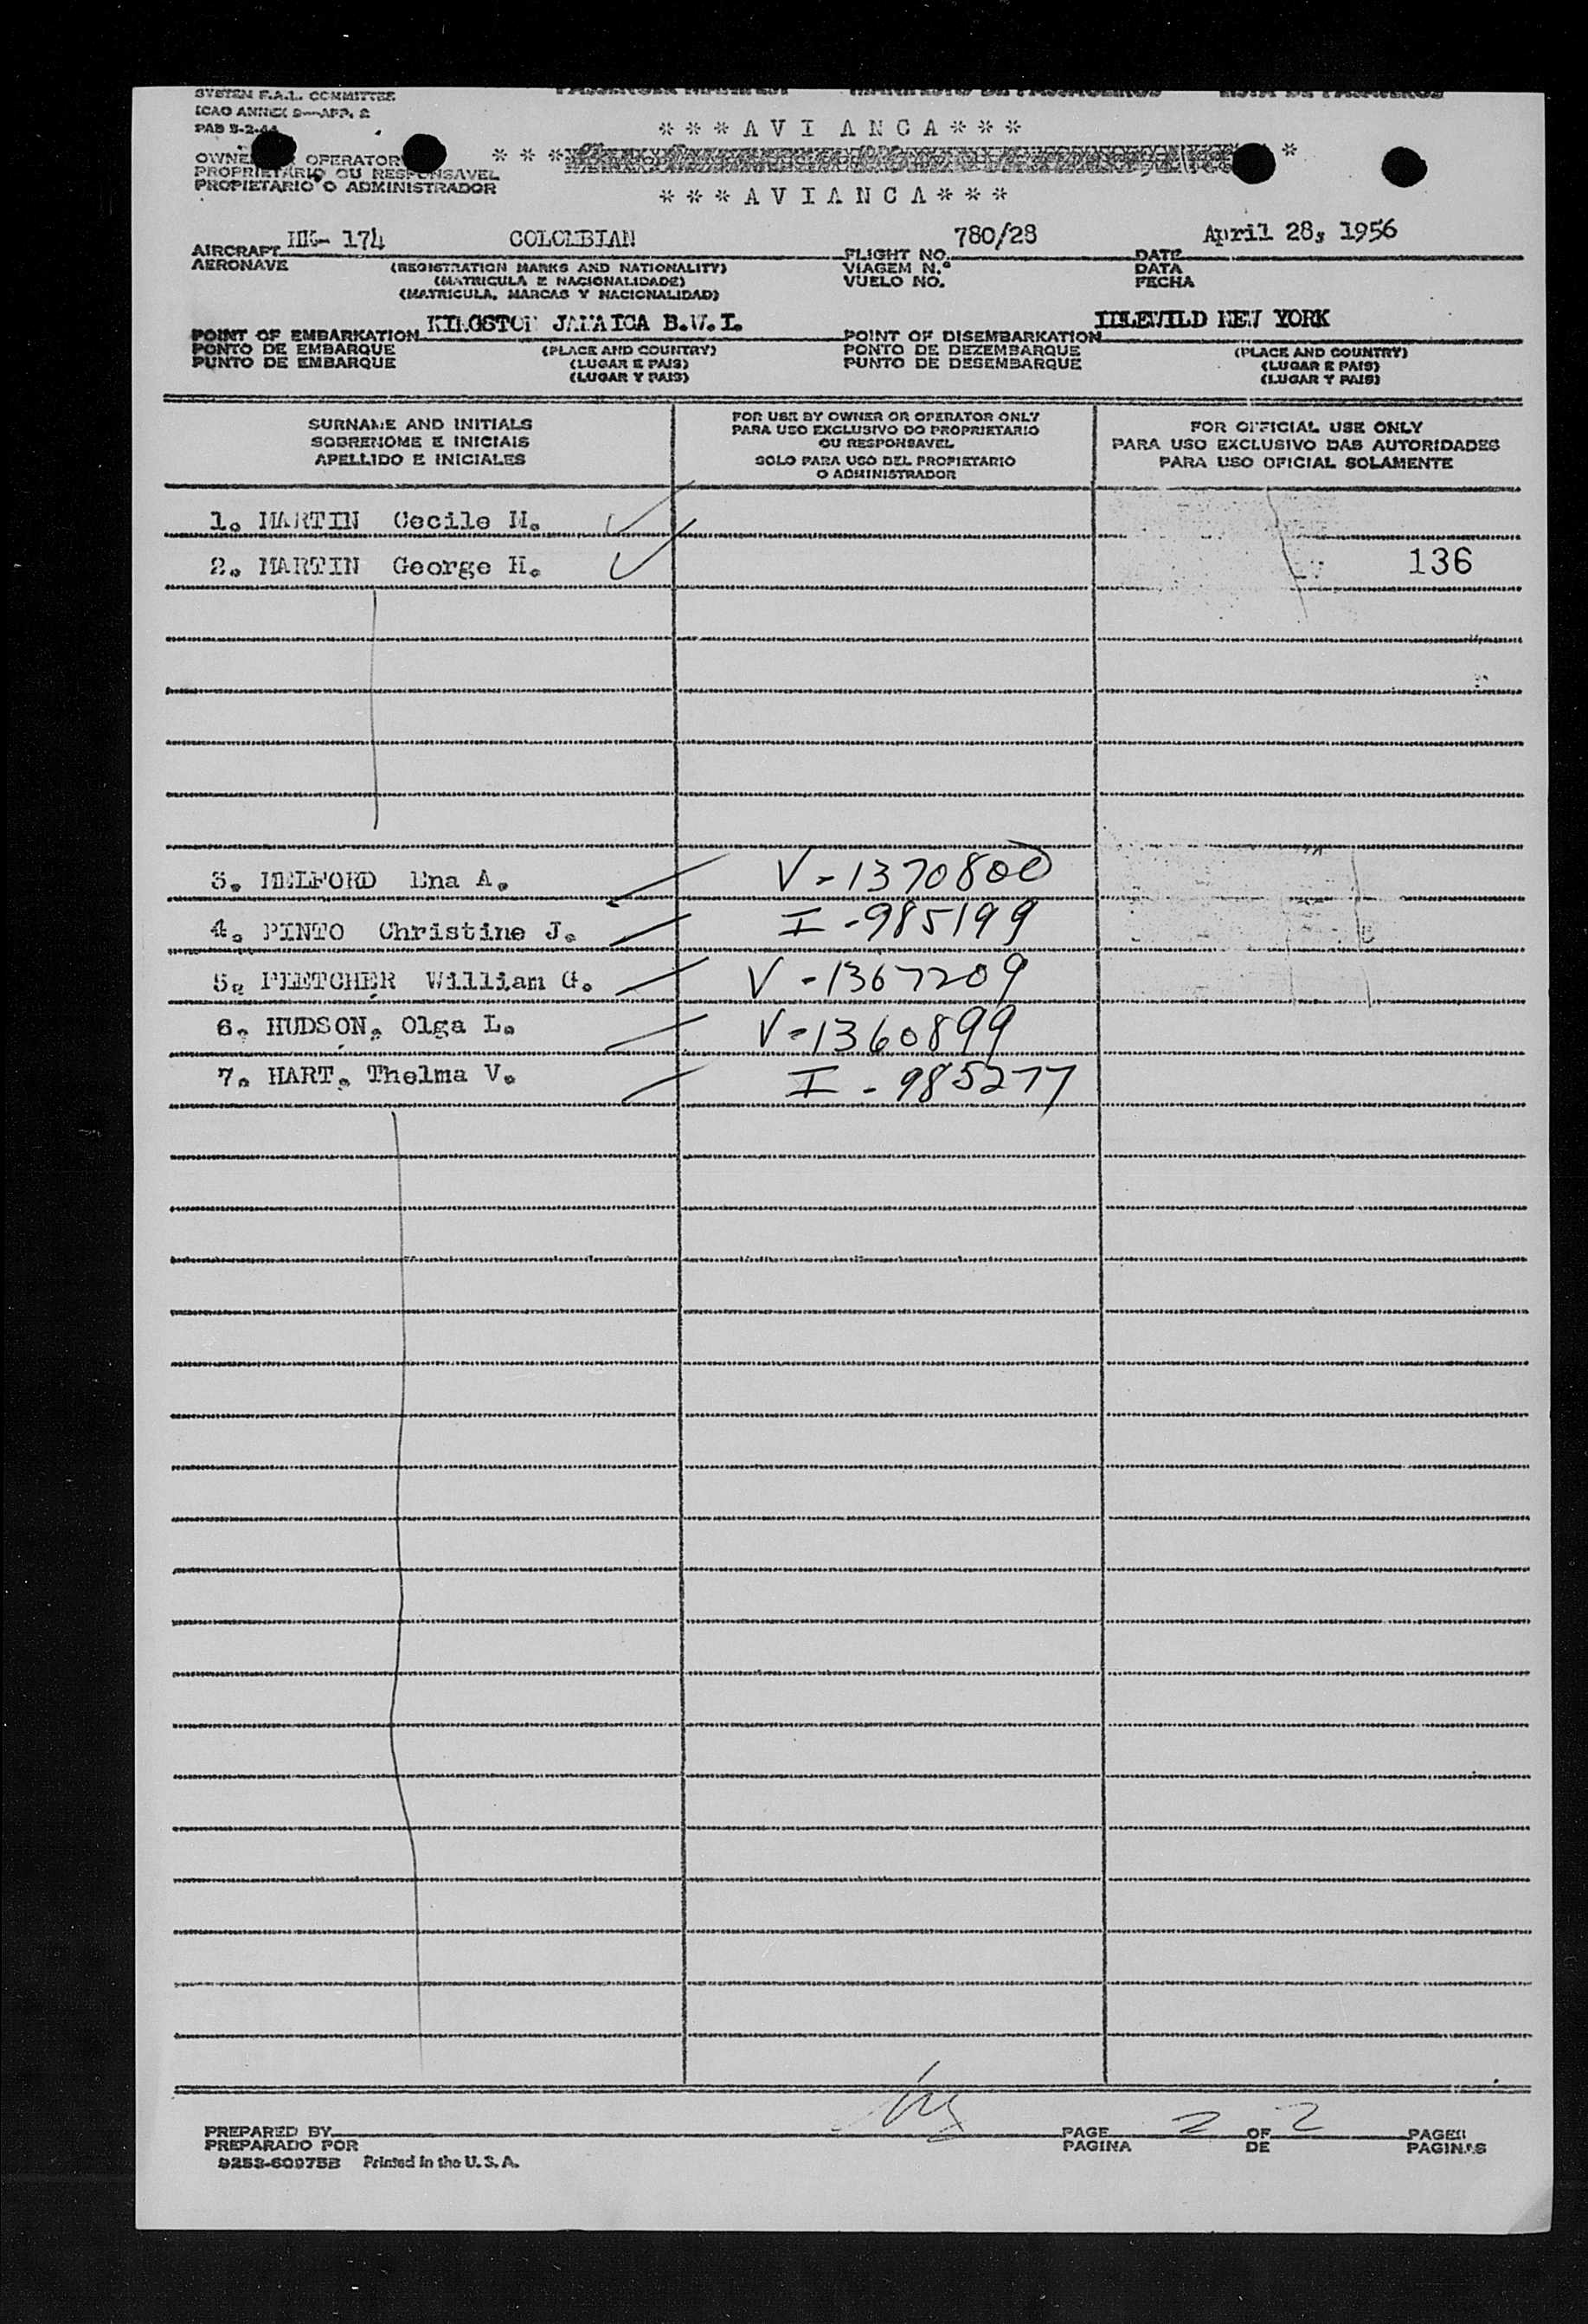 SYSTEM F.A.L. COMMITTEE
ICAO ANNEX 9—APP. 2
PAB 3-2-44
* * * A V I A N C A * * *
OWNER OR OPERATOR
PROPRIETÁRIO OU RESPONSAVEL
PROPIETARIO O ADMINISTRADOR
* * * A V I A N C A * * *
AIRCRAFT HK- 174 COLOMBIAN FLIGHT NO. 780/28 DATE April 28, 1956
AERONAVE (REGISTRATION MARKS AND NATIONALITY) VIAGEM N.º DATA
(MATRICULA E NACIONALIDADE) VUELO NO. FECHA
(MATRICULA, MARCAS Y NACIONALIDAD)
POINT OF EMBARKATION KINGSTON JAMAICA B.W.I. POINT OF DISEMBARKATION IDLEWILD NEW YORK
PONTO DE EMBARQUE (PLACE AND COUNTRY) PONTO DE DEZEMBARQUE (PLACE AND COUNTRY)
PUNTO DE EMBARQUE (LUGAR E PAIS) PUNTO DE DESEMBARQUE (LUGAR E PAIS)
(LUGAR Y PAIS) (LUGAR Y PAIS)
SURNAME AND INITIALS
SOBRENOME E INICIAIS
APELLIDO E INICIALES
FOR USE BY OWNER OR OPERATOR ONLY
PARA USO EXCLUSIVO DO PROPRIETARIO
OU RESPONSAVEL
SOLO PARA USO DEL PROPIETARIO
O ADMINISTRADOR
FOR OFFICIAL USE ONLY
PARA USO EXCLUSIVO DAS AUTORIDADES
PARA USO OFICIAL SOLAMENTE
1. MARTIN Cecile M.
2. MARTIN George H. 136
3. MELFORD Ena A. V-1370800
4. PINTO Christine J. I-985199
5. FLETCHER William G. V-1367209
6. HUDSON. Olga L. V-1360899
7. HART. Thelma V. I-985277
PREPARED BY PAGE 2 OF 2 PAGES
PREPARADO POR PAGINA DE PAGINAS
9253-60975B Printed in the U.S.A.